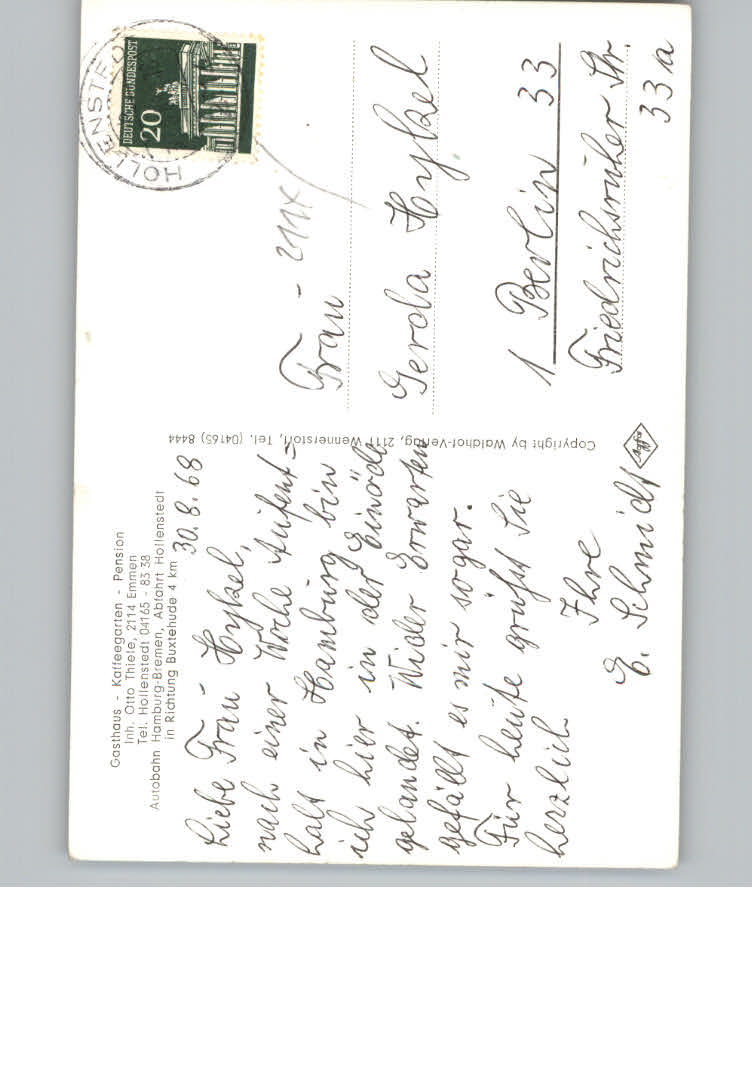 Gasthaus - Kaffeegarten - Pension
Inh. Otto Thiele, 2114 Emmen
Tel. Hollenstedt 04165 - 83 38
Autobahn Hamburg-Bremen, Abfahrt Hollenstedt
in Richtung Buxtehude 4 km
30.8.68
Liebe Frau Hyksel,
nach einer Woche Aufent=
halt in Hamburg bin
ich hier in der Einöde
gelandet. Wider Erwarten
gefällt es mir sogar.
Für heute grüßt Sie
herzlich
Ihre
E. Schmidt
Copyright by Waldhof-Verlag, 2111 Wennerstorf, Tel. (04165) 8444
Agfa
DEUTSCHE BUNDESPOST
20
HOLLENSTED
Frau - 2114
Gerda Hyksel
1 Berlin 33
Friedrichsruher Str.
33a